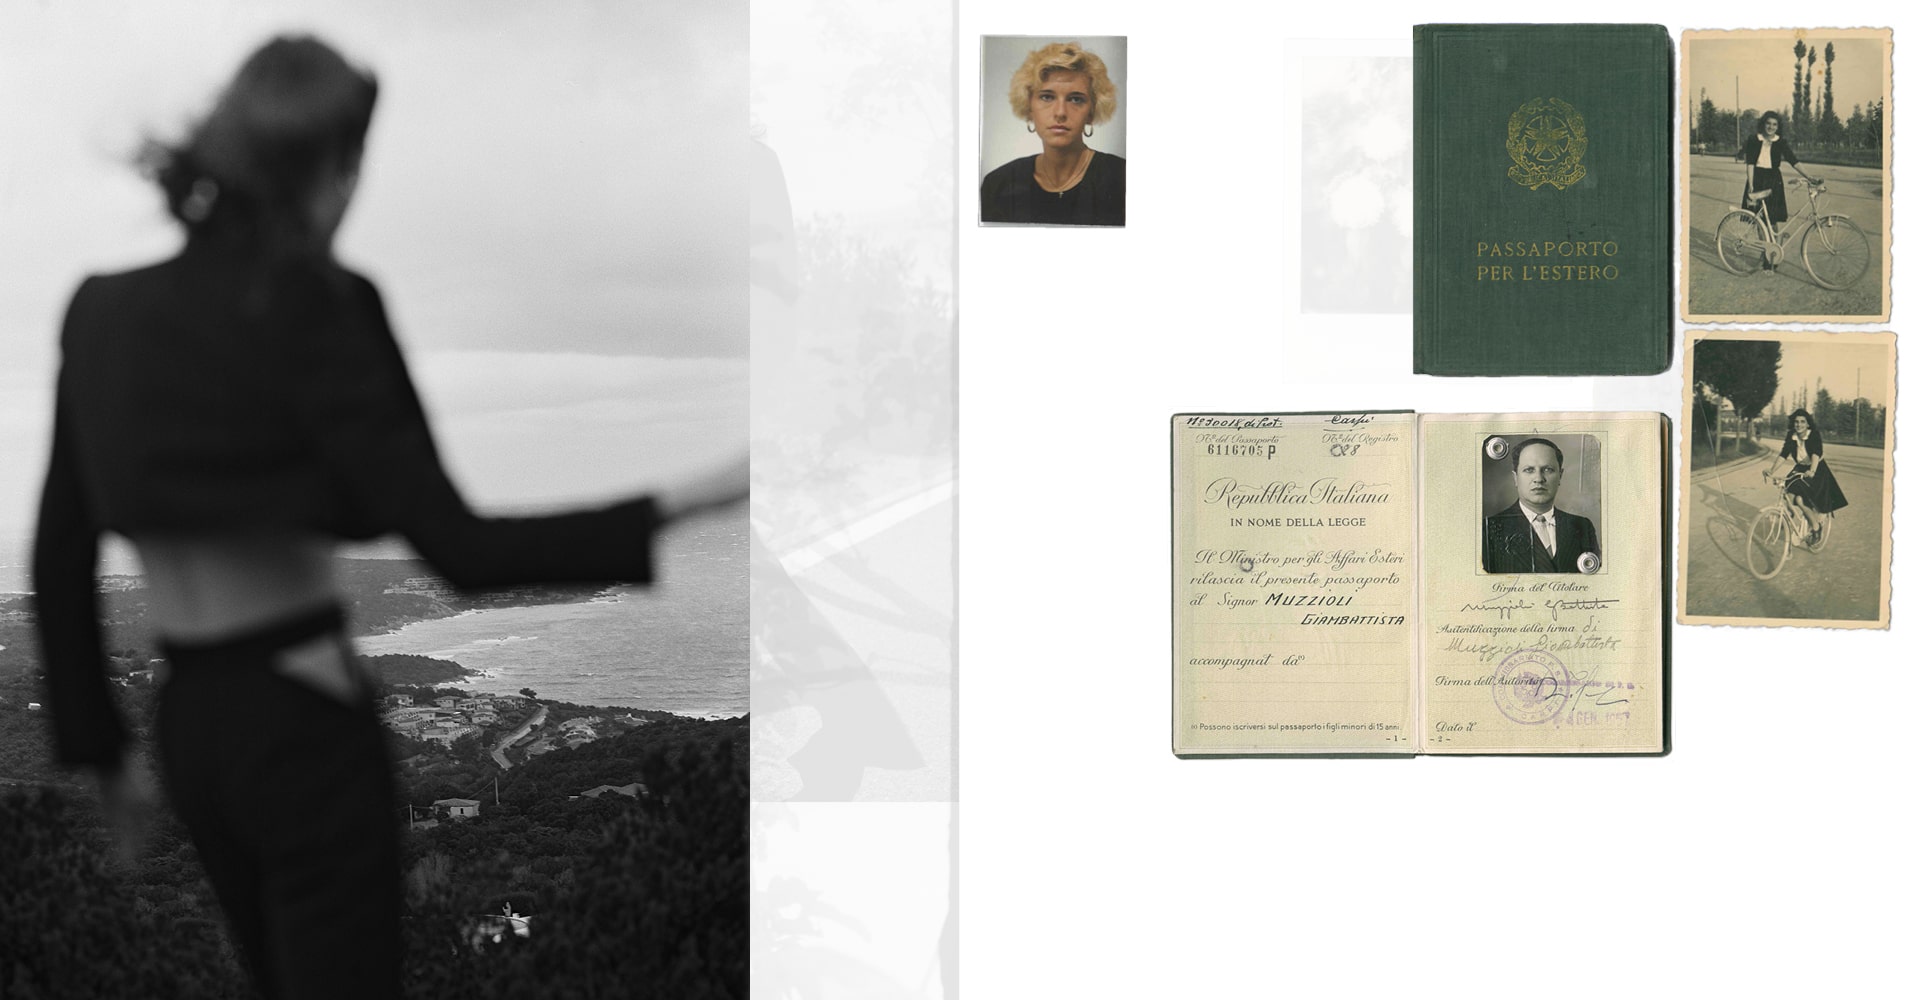 PASSAPORTO
PER L'ESTERO
Nº del Passaporto
6116705 P
Nº del Registro
Repubblica Italiana
IN NOME DELLA LEGGE
Il Ministro per gli Affari Esteri
rilascia il presente passaporto
al Signor MUZZIOLI
GIAMBATTISTA
accompagnat da(*)
Possono iscriversi sul passaporto i figli minori di 15 anni.
- 1 -
Firma del Titolare
Autentificazione della firma di
Muzzioli Giambattista
Firma dell'Autorità
Dato il
- 2 -